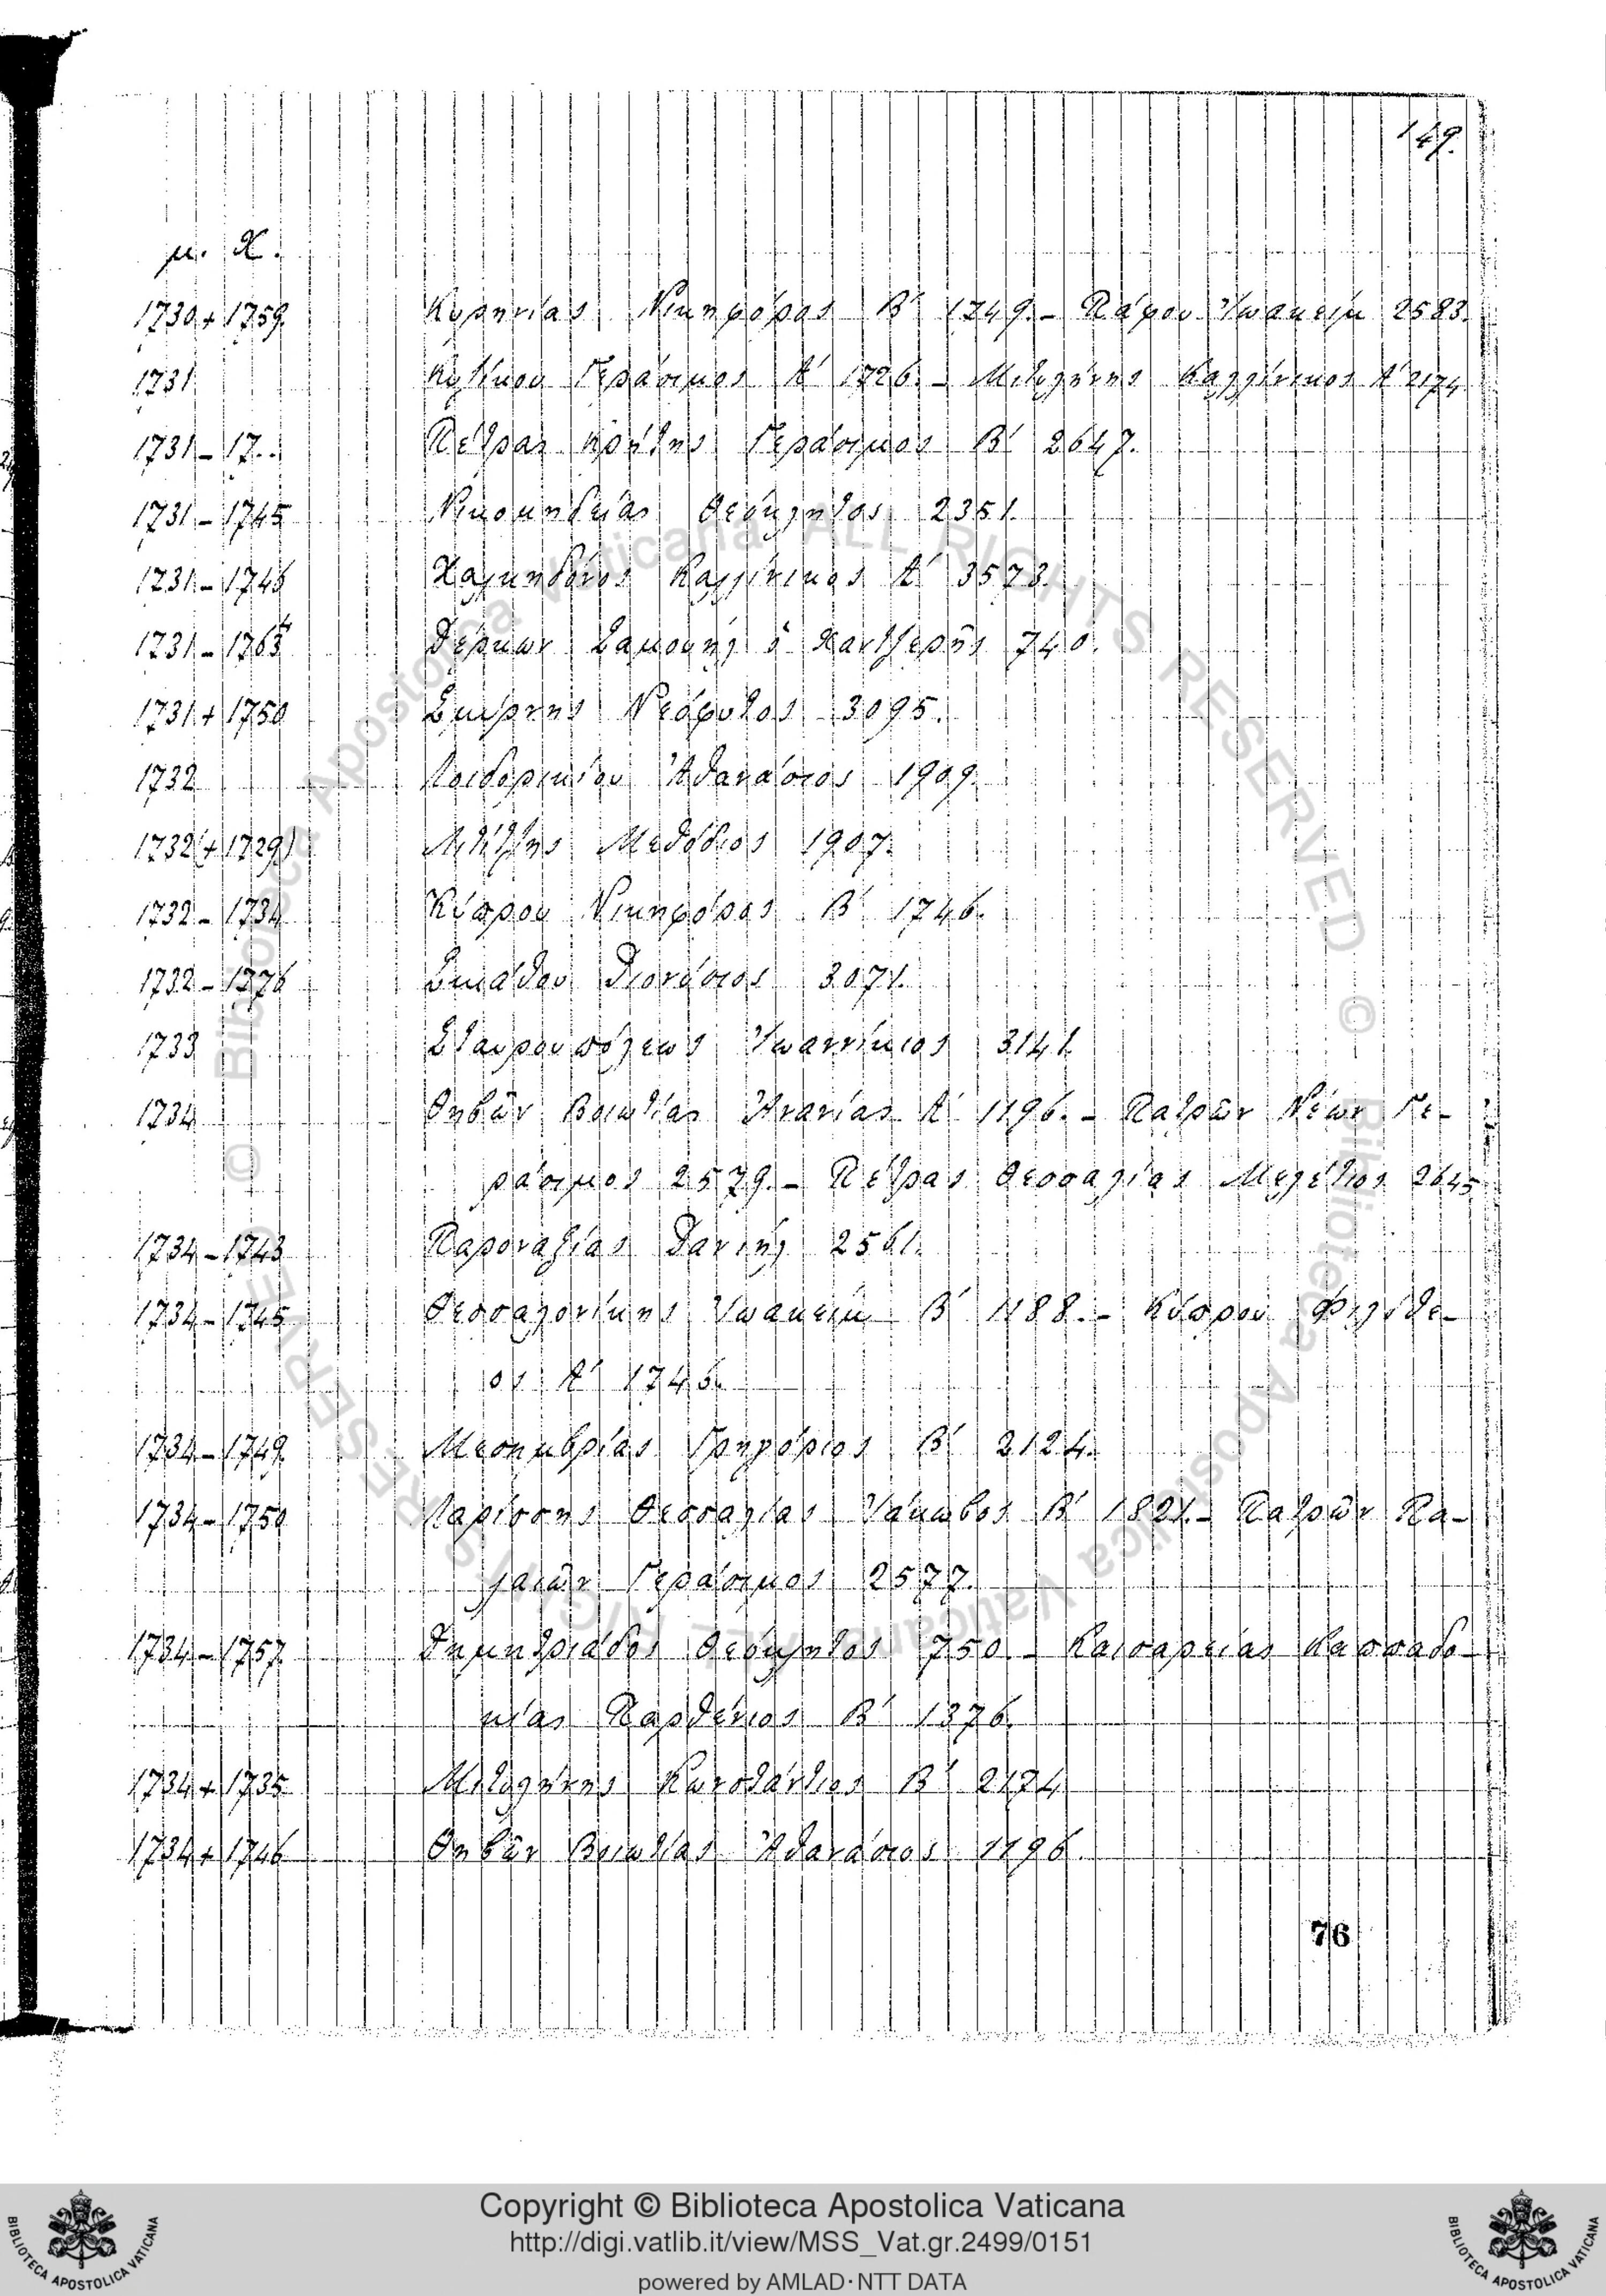 149.
μ. Χ.
1730 + 1759. Κυρηνίας Νικηφόρος Β' 1749. – Πάφου Ἰωακεὶμ 2583.
1731 Κυζίκου Γεράσιμος Α' 1726. – Μιτυλήνης Καλλίνικος Α' 2174
1731 – 17.. Πέτρας Κρήτης Γεράσιμος Β' 2647.
1731 – 1745 Νικομηδείας Θεόκλητος 2351.
1731 – 1746 Χαλκηδόνος Καλλίνικος Α' 3573.
1731 – 1763 Δέρκων Σαμουὴλ ὁ Χαντζερῆς 740.
1731 + 1750 Σμύρνης Νεόφυτος 3095.
1732 Λοιδορικίου Ἀθανάσιος 1909.
1732 (+ 1729) Λιτίτζης Μεθόδιος 1907.
1732 – 1734 Κύπρου Νικηφόρος Β' 1746.
1732 – 1776 Σκιάθου Διονύσιος 3071.
1733 Σταυρουπόλεως Ἰωαννίκιος 3141.
1734 Θηβῶν Βοιωτίας Ἀνανίας Α' 1196. – Πατρῶν Νέων Γε-
ράσιμος 2579. – Πέτρας Θεσσαλίας Μελέτιος 2645
1734 – 1743 Παροναξίας Δανιὴλ 2561.
1734 – 1745 Θεσσαλονίκης Ἰωακεὶμ Β' 1188. – Κύπρου Φιλόθε-
ος Α' 1746.
1734 – 1749 Μεσημβρίας Γρηγόριος Β' 2124.
1734 – 1750 Λαρίσσης Θεσσαλίας Ἰάκωβος Β' 1821. – Πατρῶν Πα-
λαιῶν Γεράσιμος 2577.
1734 – 1757. Δημητριάδος Θεόκλητος 750. – Καισαρείας Καππαδο-
κίας Παρθένιος Β' 1376.
1734 + 1735 Μιτυλήνης Κωνστάντιος Β' 2174
1734 + 1746 Θηβῶν Βοιωτίας Ἀθανάσιος 1196.
76
Copyright © Biblioteca Apostolica Vaticana
http://digi.vatlib.it/view/MSS_Vat.gr.2499/0151
powered by AMLAD·NTT DATA